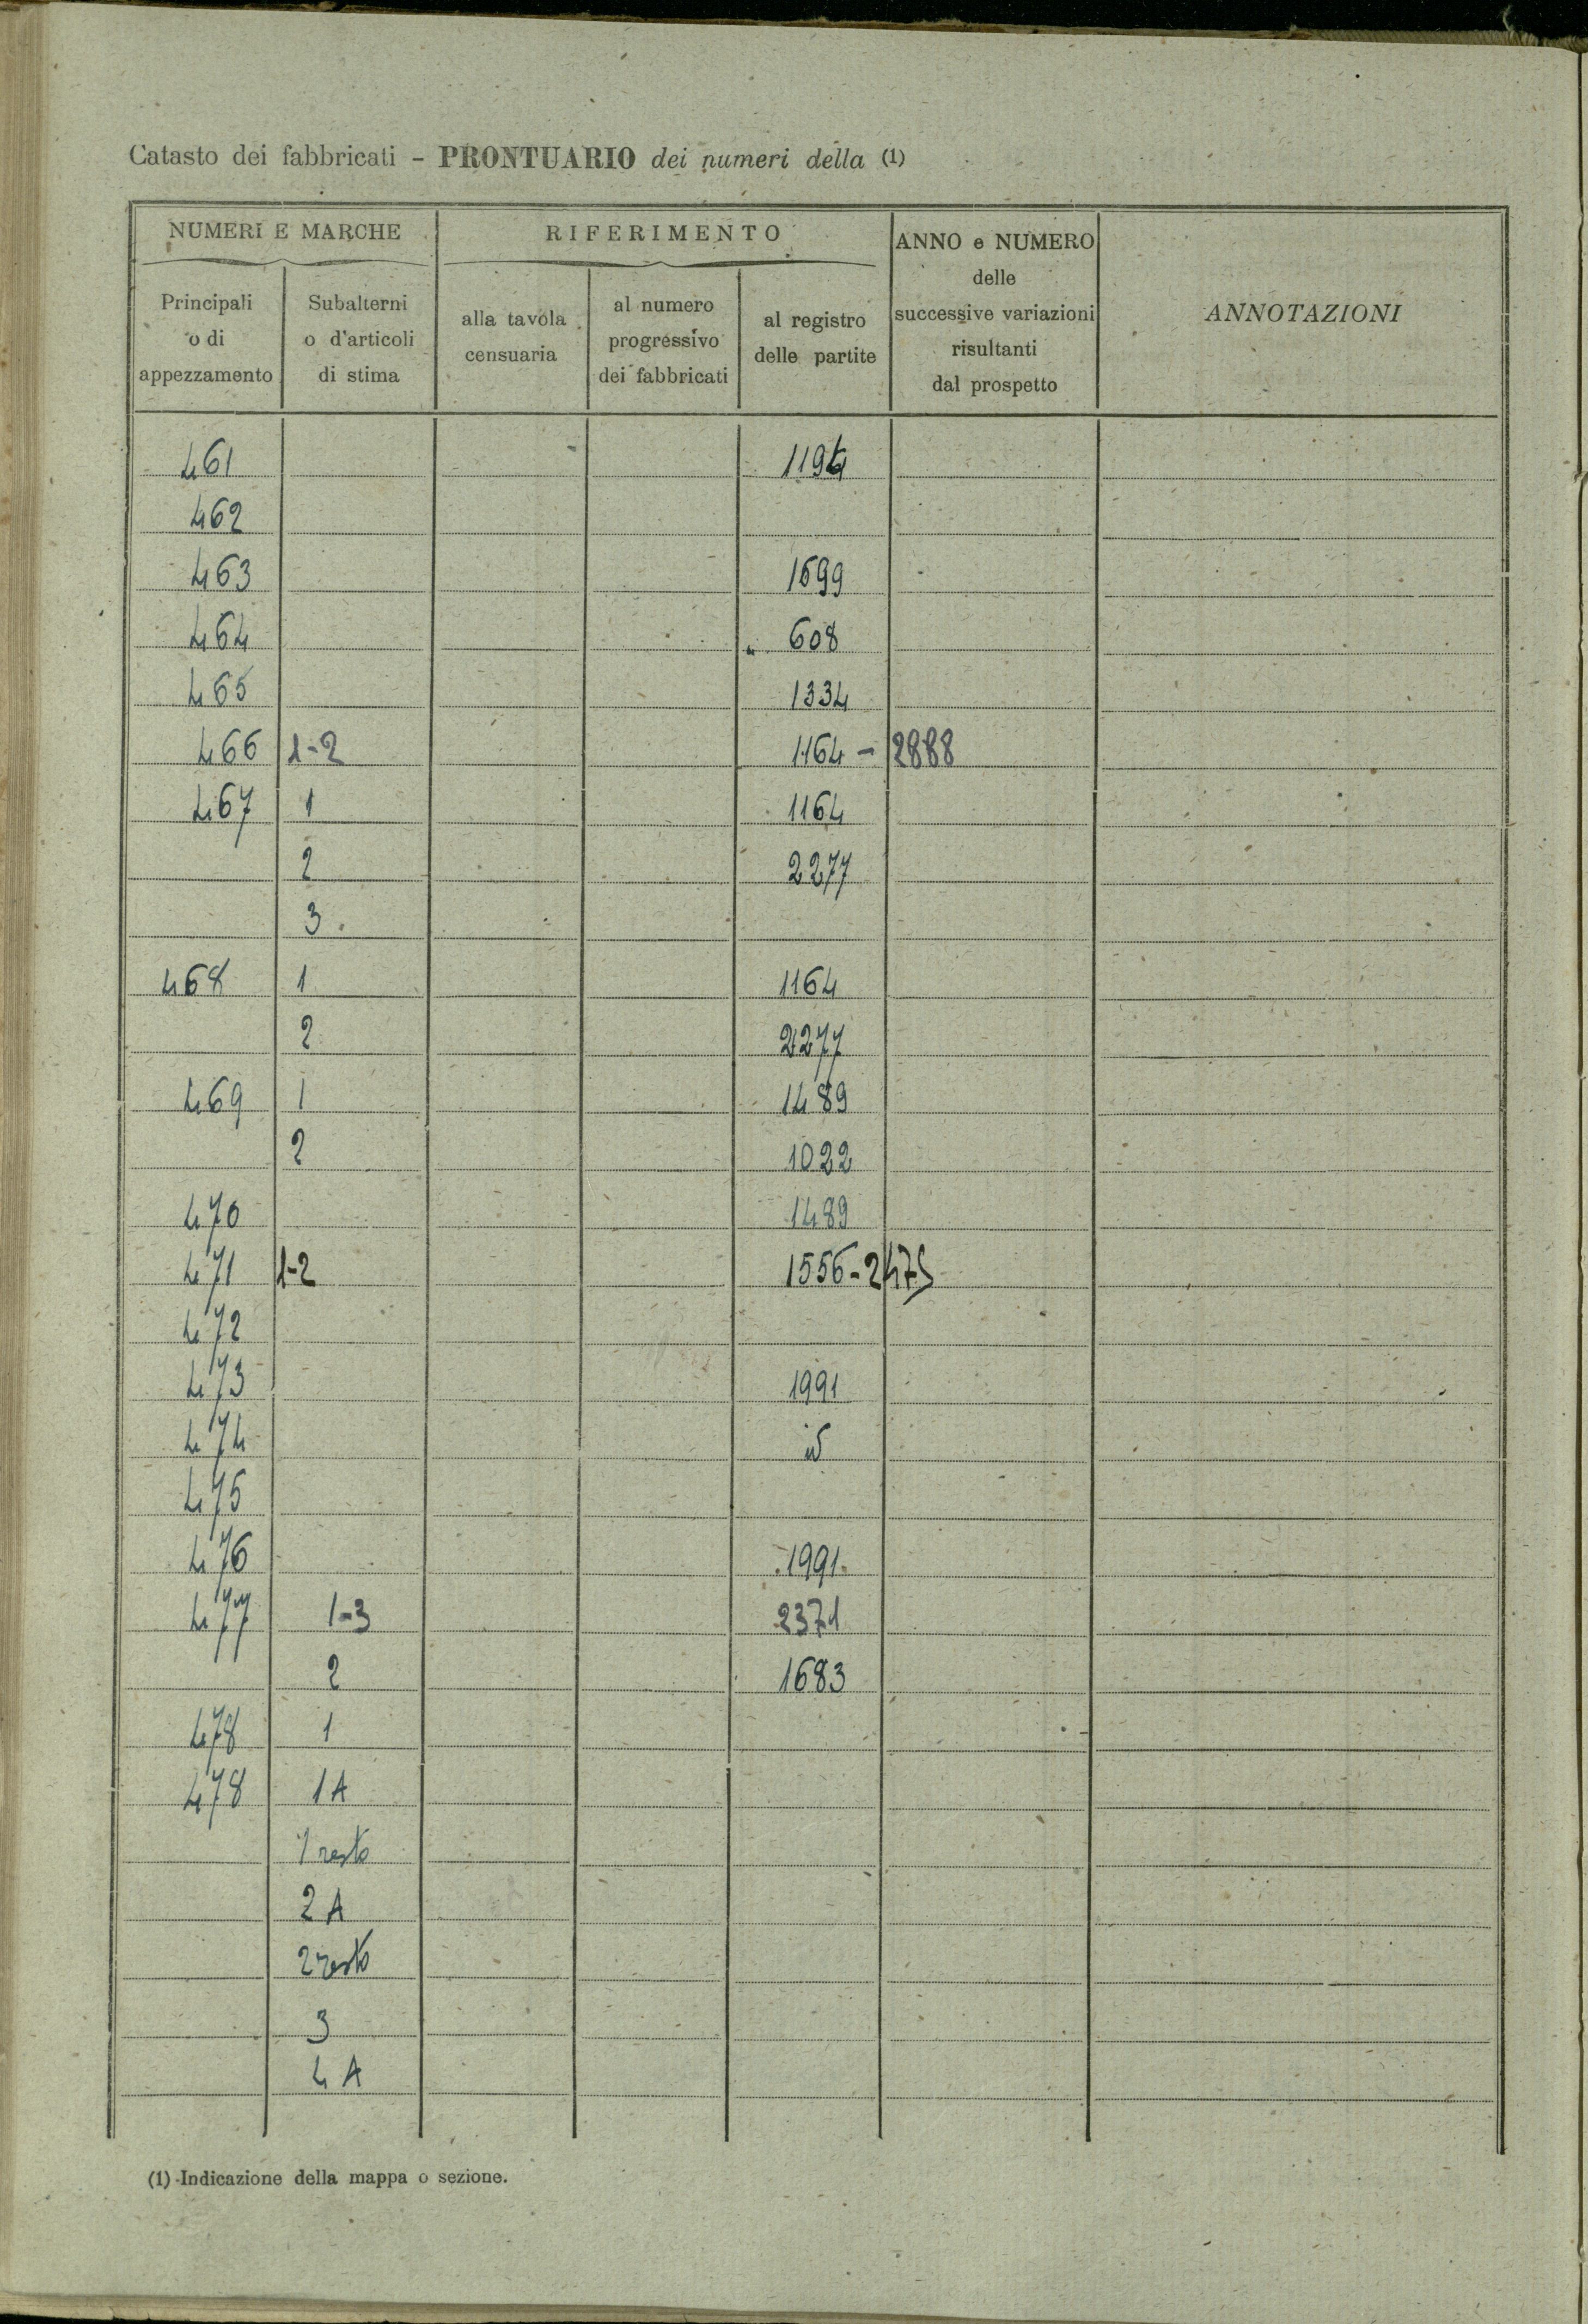 Catasto dei fabbricati - PRONTUARIO dei numeri della (1)
NUMERI E MARCHE RIFERIMENTO ANNO e NUMERO delle successive variazioni risultanti dal prospetto ANNOTAZIONI
Principali o di appezzamento Subalterni o d'articoli di stima alla tavola censuaria al numero progressivo dei fabbricati al registro delle partite
461
462
463 1699
464 608
465 1334
466 1-2 1164 - 2888
467 1 1164
2 2277
3
468 1 1164
2 2277
469 1 1489
2 1022
470 1489
471 1-2 1556-2475
472
473 1991
474 id
475
476 1991
477 1-3 2371
2 1683
478 1
478 1A
1 resto
2 A
2 resto
3
4 A
(1) Indicazione della mappa o sezione.